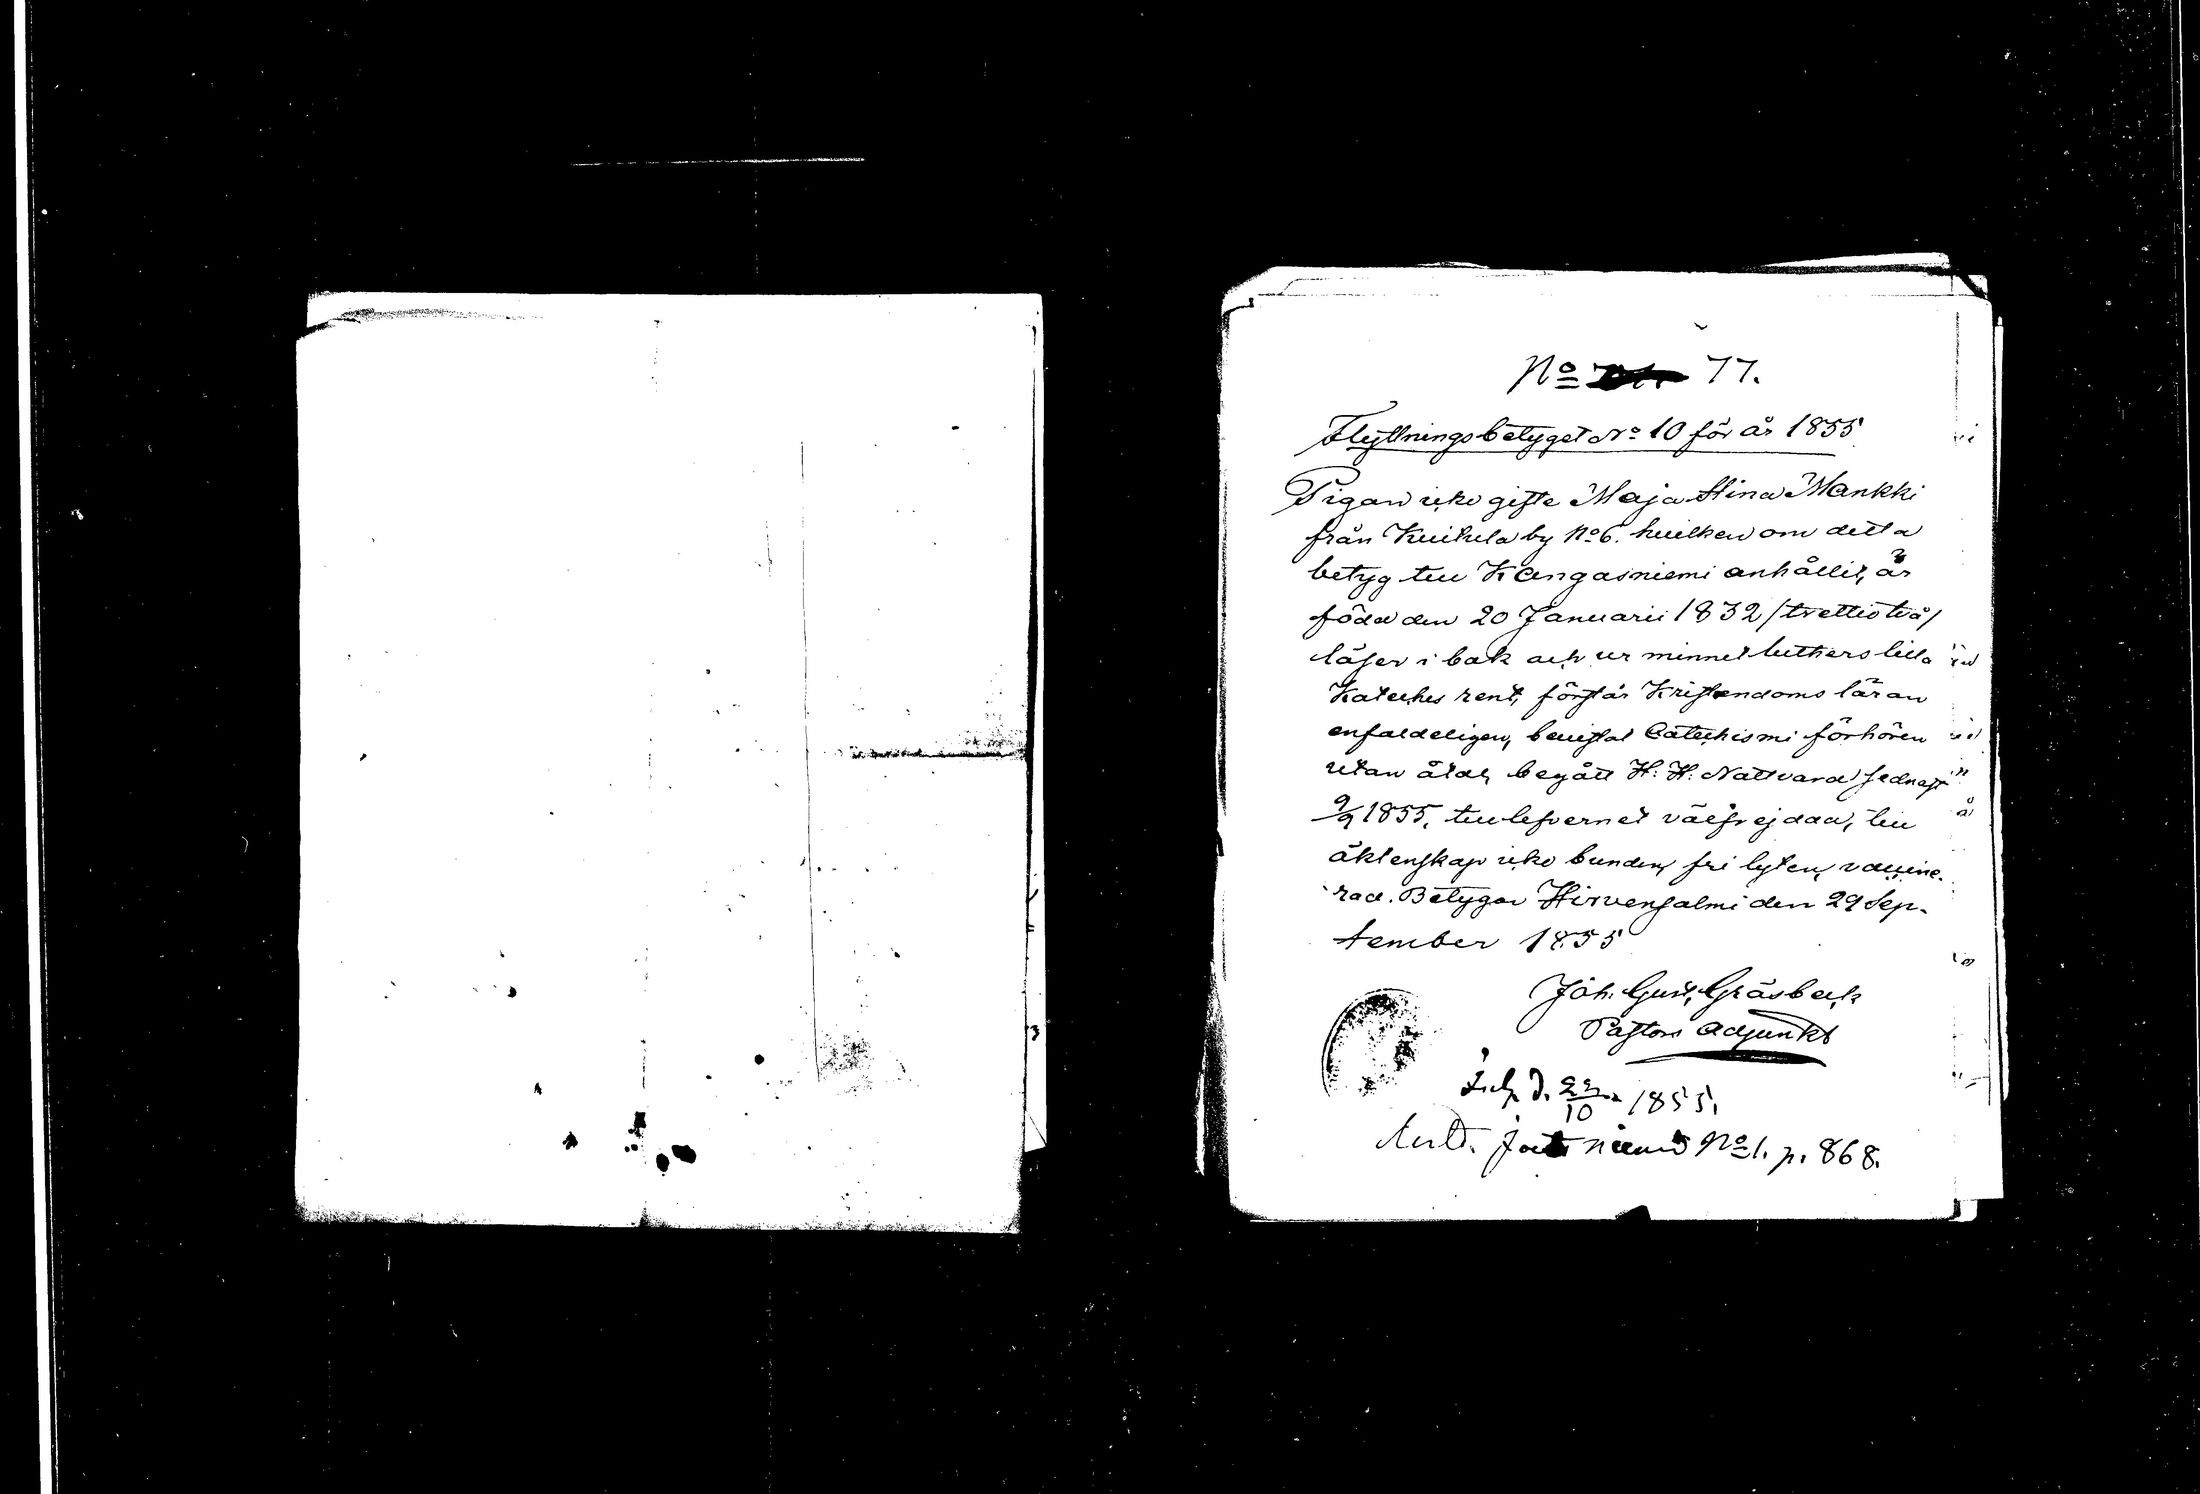 No 77.
Flyttningsbetyget No 10 för år 1855
Pigan icke gifte Maja Stina Mankki
från Kuitula by No 6. hvilken om detta
betyg till Kangasniemi anhållit, är
född den 20 Januarii 1832 /trettio två/
läser i bok och ur minnet luthers lilla
Kateches rent, förstår Kristendoms läran
enfaldeligen, bevistat Catechismi förhören
utan åtal, begått H. H. Nattvard sednast
9/9 1855, till lefvernet välfrejdad, till
äktenskap icke bunden, fri lyten, vaccine-
rad. Betygar Hirvensalmi den 29 Sep-
tember 1855
Joh. Gust. Gråsbeck
Pastors Adjunkt
d. 22/10 1855.
No 1. p. 868.